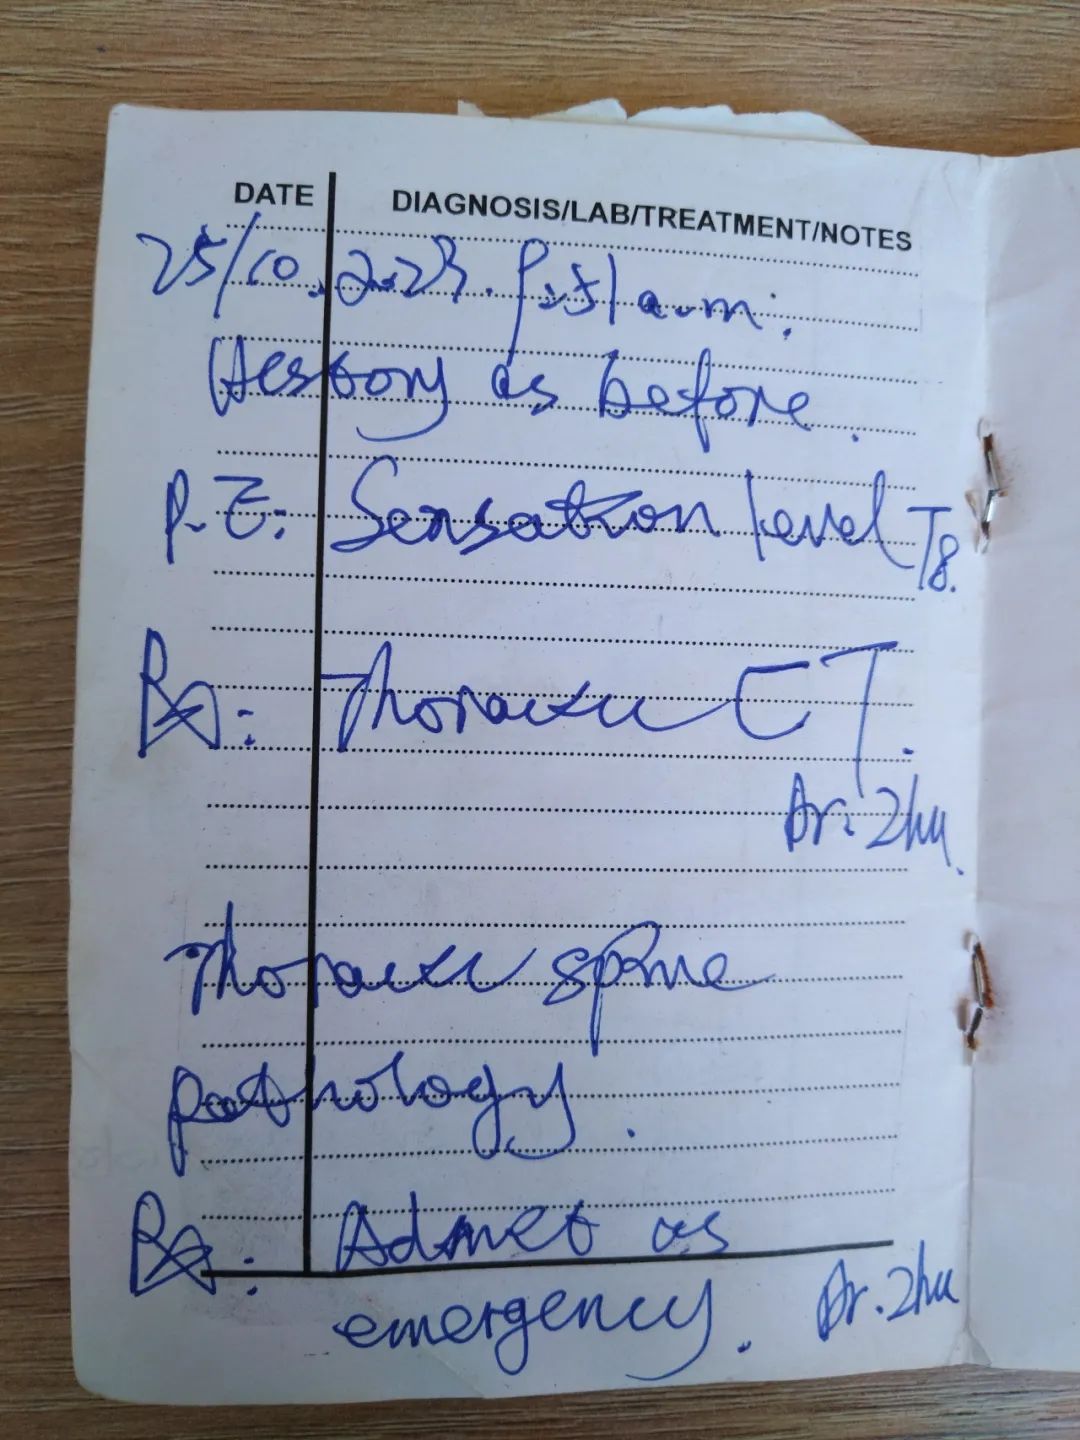 DATE DIAGNOSIS/LAB/TREATMENT/NOTES
25/10.2023. 9:51 a.m.
History as before.
P.E: Sensation level T8.
Rx: Thoracic CT.
Dr. Zhu.
Thoracic spine
pathology.
Rx: Admit as
emergency. Dr. Zhu